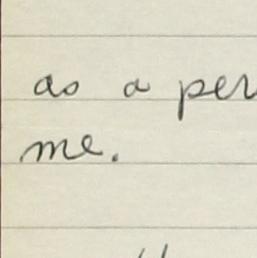 as a per
me.